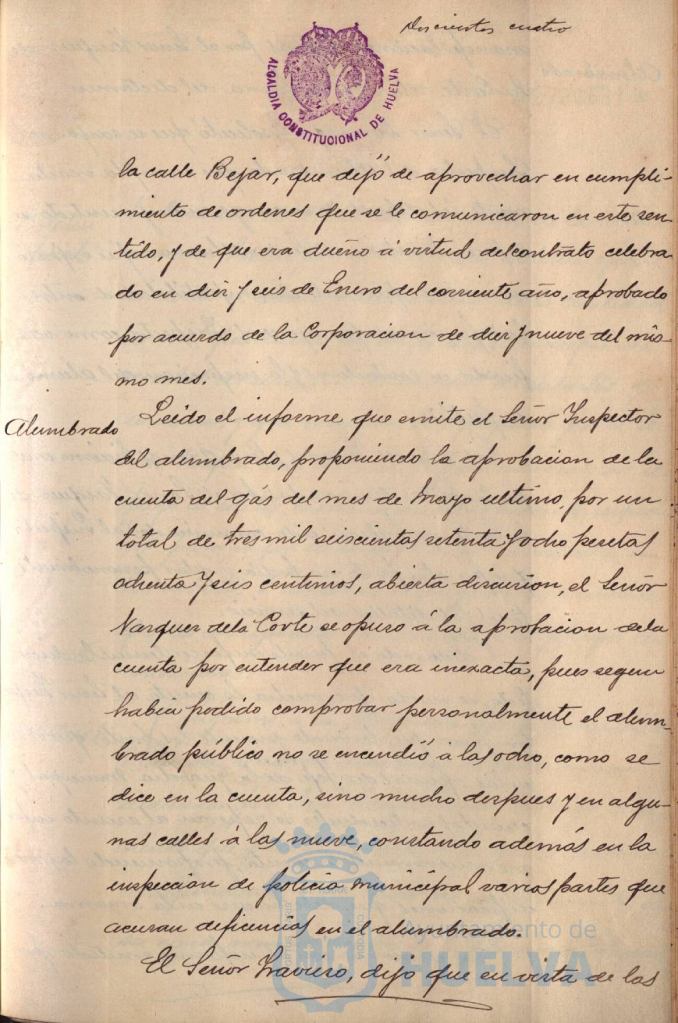 Doscientos cuatro
ALCALDIA CONSTITUCIONAL DE HUELVA
la calle Bejar, que dejó de aprovechar en cumpli-
miento de ordenes que se le comunicaron en este sen-
tido, y de que era dueño á virtud del contrato celebra-
do en diez y seis de Enero del corriente año, aprobado
por acuerdo de la Corporacion de diez y nueve del mis-
mo mes.
Alumbrado
Leido el informe que emite el Señor Inspector
del alumbrado, proponiendo la aprobacion de la
cuenta del gás del mes de Mayo ultimo, por un
total de tres mil seiscientas setenta y ocho pesetas
ochenta y seis centimos, abierta discusion, el Señor
Vazquez de la Corte se opuso á la aprobacion de la
cuenta por entender que era inexacta, pues segun
habia podido comprobar personalmente el alum-
brado público no se encendió á las ocho, como se
dice en la cuenta, sino mucho despues y en algu-
nas calles á las nueve, constando además en la
inspeccion de policia municipal varios partes que
acusan deficiencias en el alumbrado.
El Señor Travieso, dijo que en vista de las
Ayuntamiento de
HUELVA